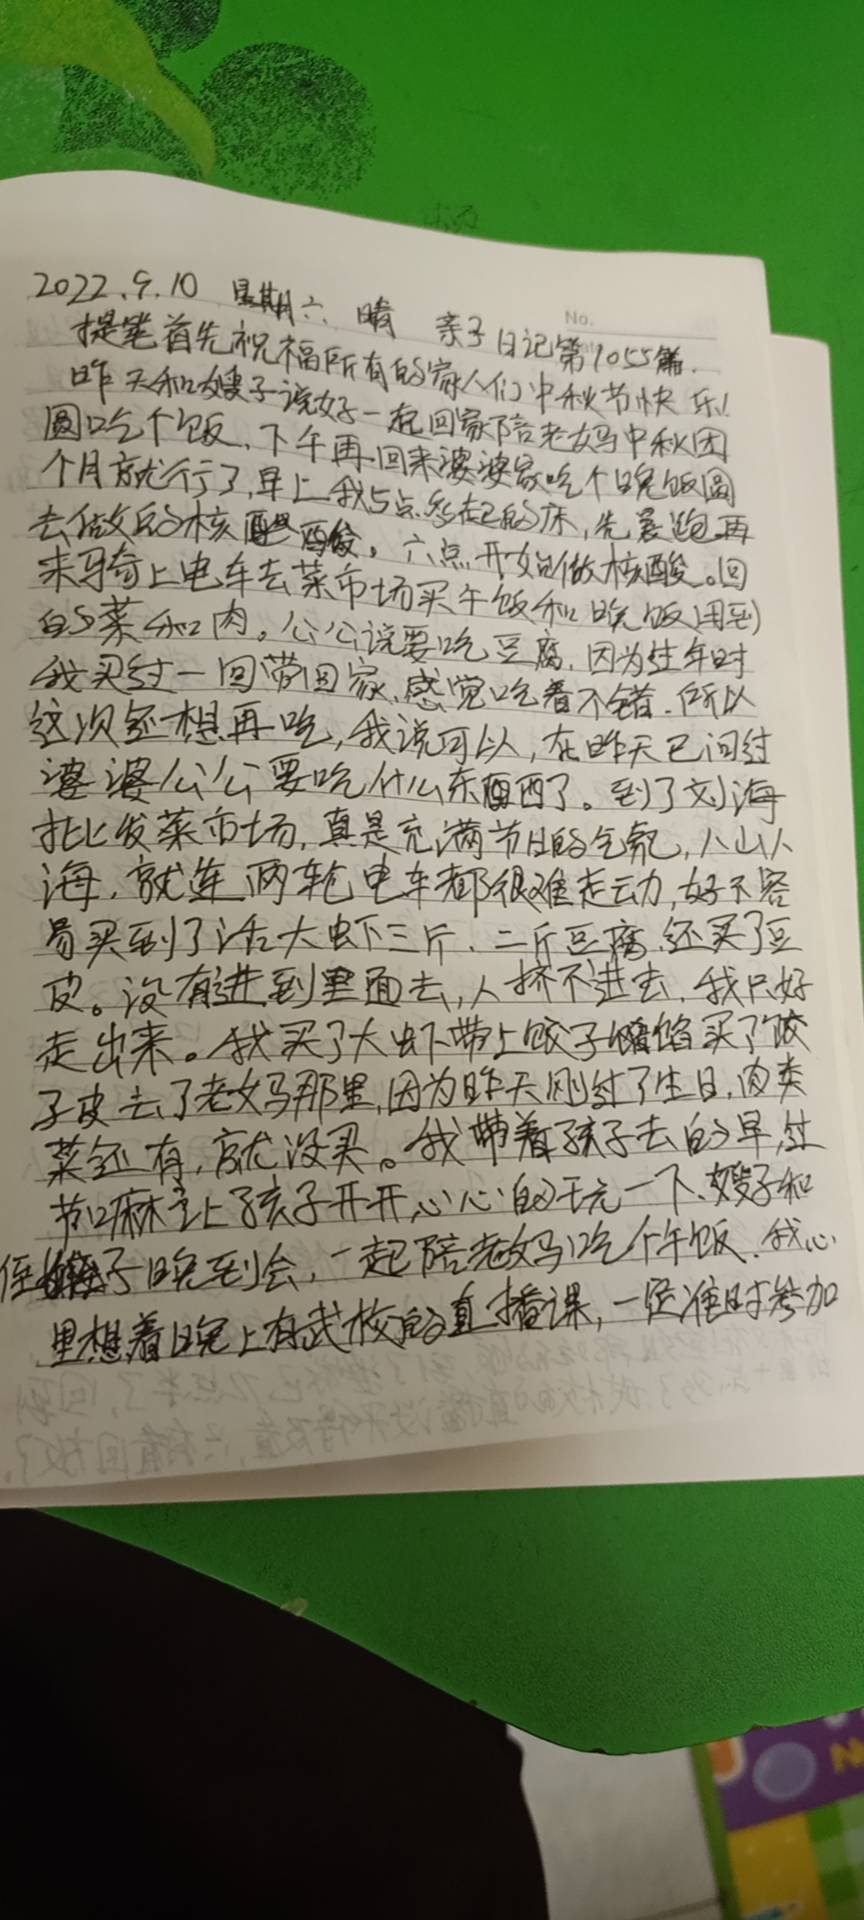 No.
2022.9.10 星期六 晴 亲子日记第1055篇.
提笔首先祝福所有的家人们中秋节快乐!
昨天和嫂子说好一起回家陪老妈中秋团
圆吃个饭,下午再回来婆婆家吃个晚饭圆
个月就行了,早上我5点多起的床,先晨跑再
去做的核酸。六点开始做核酸。回
来骑上电车去菜市场买午饭和晚饭用到
的菜和肉。公公说要吃豆腐,因为过年时
我买过一回带回家,感觉吃着不错.所以
这次还想再吃,我说可以,在昨天已问过
婆婆公公要吃什么东西了。到了刘海
批发菜市场,真是充满节日的气氛,人山人
海,就连两轮电车都很难走动,好不容
易买到了活大虾三斤,二斤豆腐,还买了豆
皮。没有进到里面去,人挤不进去,我只好
走出来。我买了大虾带上饺子馅买了饺
子皮去了老妈那里,因为昨天刚过了生日,肉类
菜还有,就没买。我带着孩子去的早,过
节嘛让孩子开开心心的玩一下、嫂子和
侄子晚到会,一起陪老妈吃个午饭.我心
里想着晚上有武校的直播课,一定准时参加